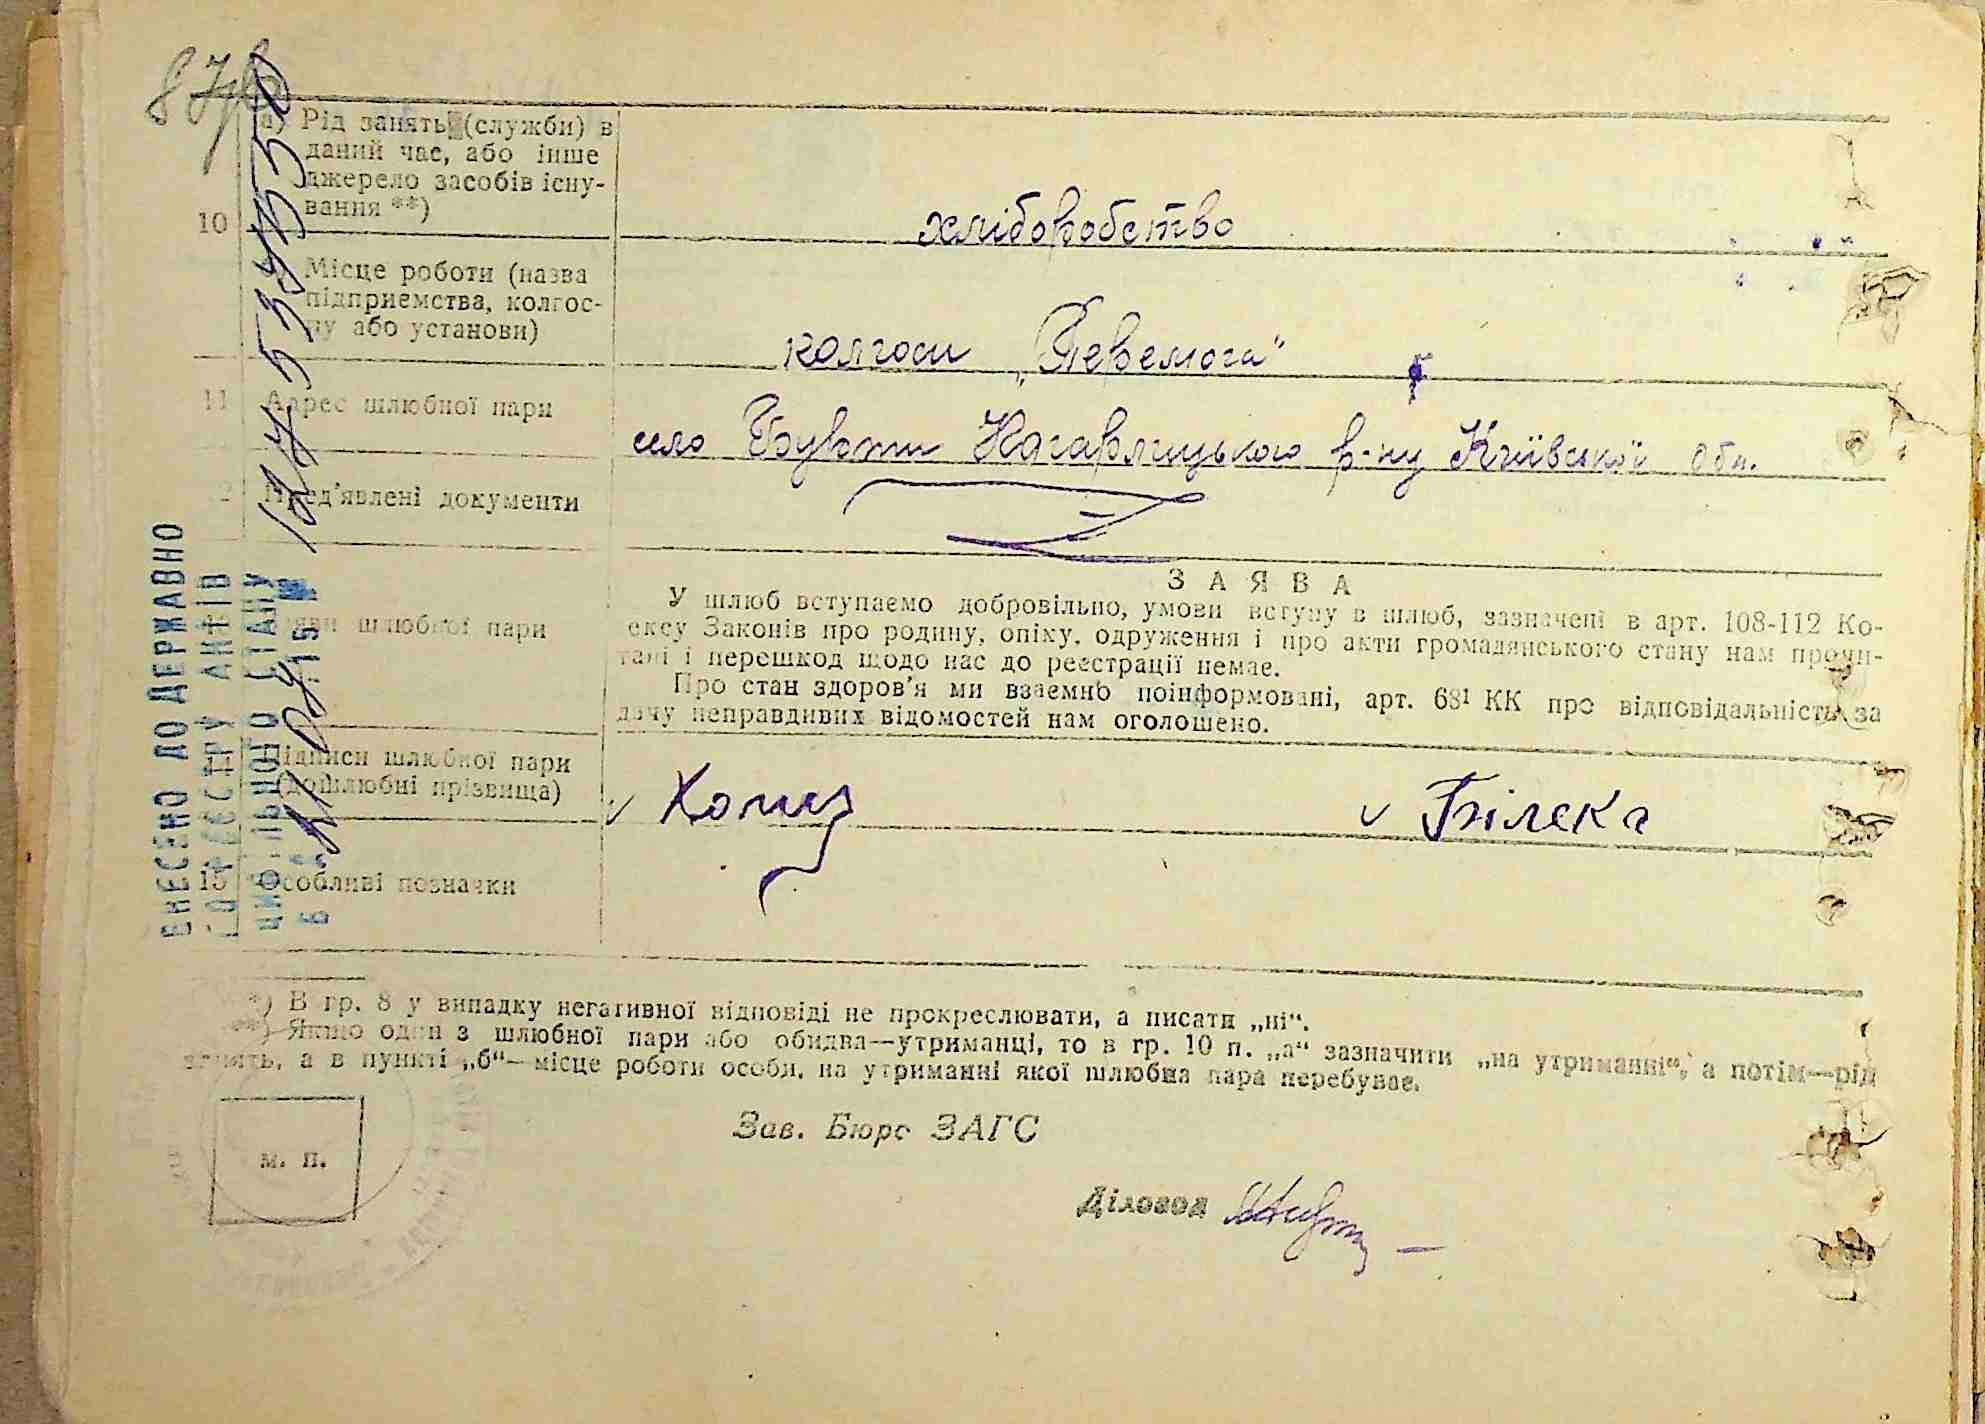 а) Рід занять (служби) в
даний час, або інше
джерело засобів існу-
вання **)
10
хліборобство
Місце роботи (назва
підприємства, колгос-
пу або установи)
колгосп „Перемога"
11 Адрес шлюбної пари
село Бурти Кагарлицького р-ну Київської обл.
Пред'явлені документи
ЗАЯВА
У шлюб вступаємо добровільно, умови вступу в шлюб, зазначені в арт. 108-112 Ко-
ексу Законів про родину, опіку, одруження і про акти громадянського стану нам прочи-
тані і перешкод щодо нас до реєстрації немає.
Про стан здоров'я ми взаємно поінформовані, арт. 68¹ КК про відповідальність за
дачу неправдивих відомостей нам оголошено.
шлюбної пари
14 Підписи шлюбної пари
(дошлюбні прізвища)
Білека
15 Особливі позначки
ВНЕСЕНО ДО ДЕРЖАВНО
РЕЄСТРУ АКТІВ
ЦИВІЛЬНОГО СТАНУ
*) В гр. 8 у випадку негативної відповіді не прокреслювати, а писати „ні".
**) Якщо один з шлюбної пари або обидва—утриманці, то в гр. 10 п. „а" зазначити „на утриманні", а потім—рід
занять, а в пункті „б"—місце роботи особи, на утриманні якої шлюбна пара перебуває.
Зав. Бюро ЗАГС
м. п.
Діловод